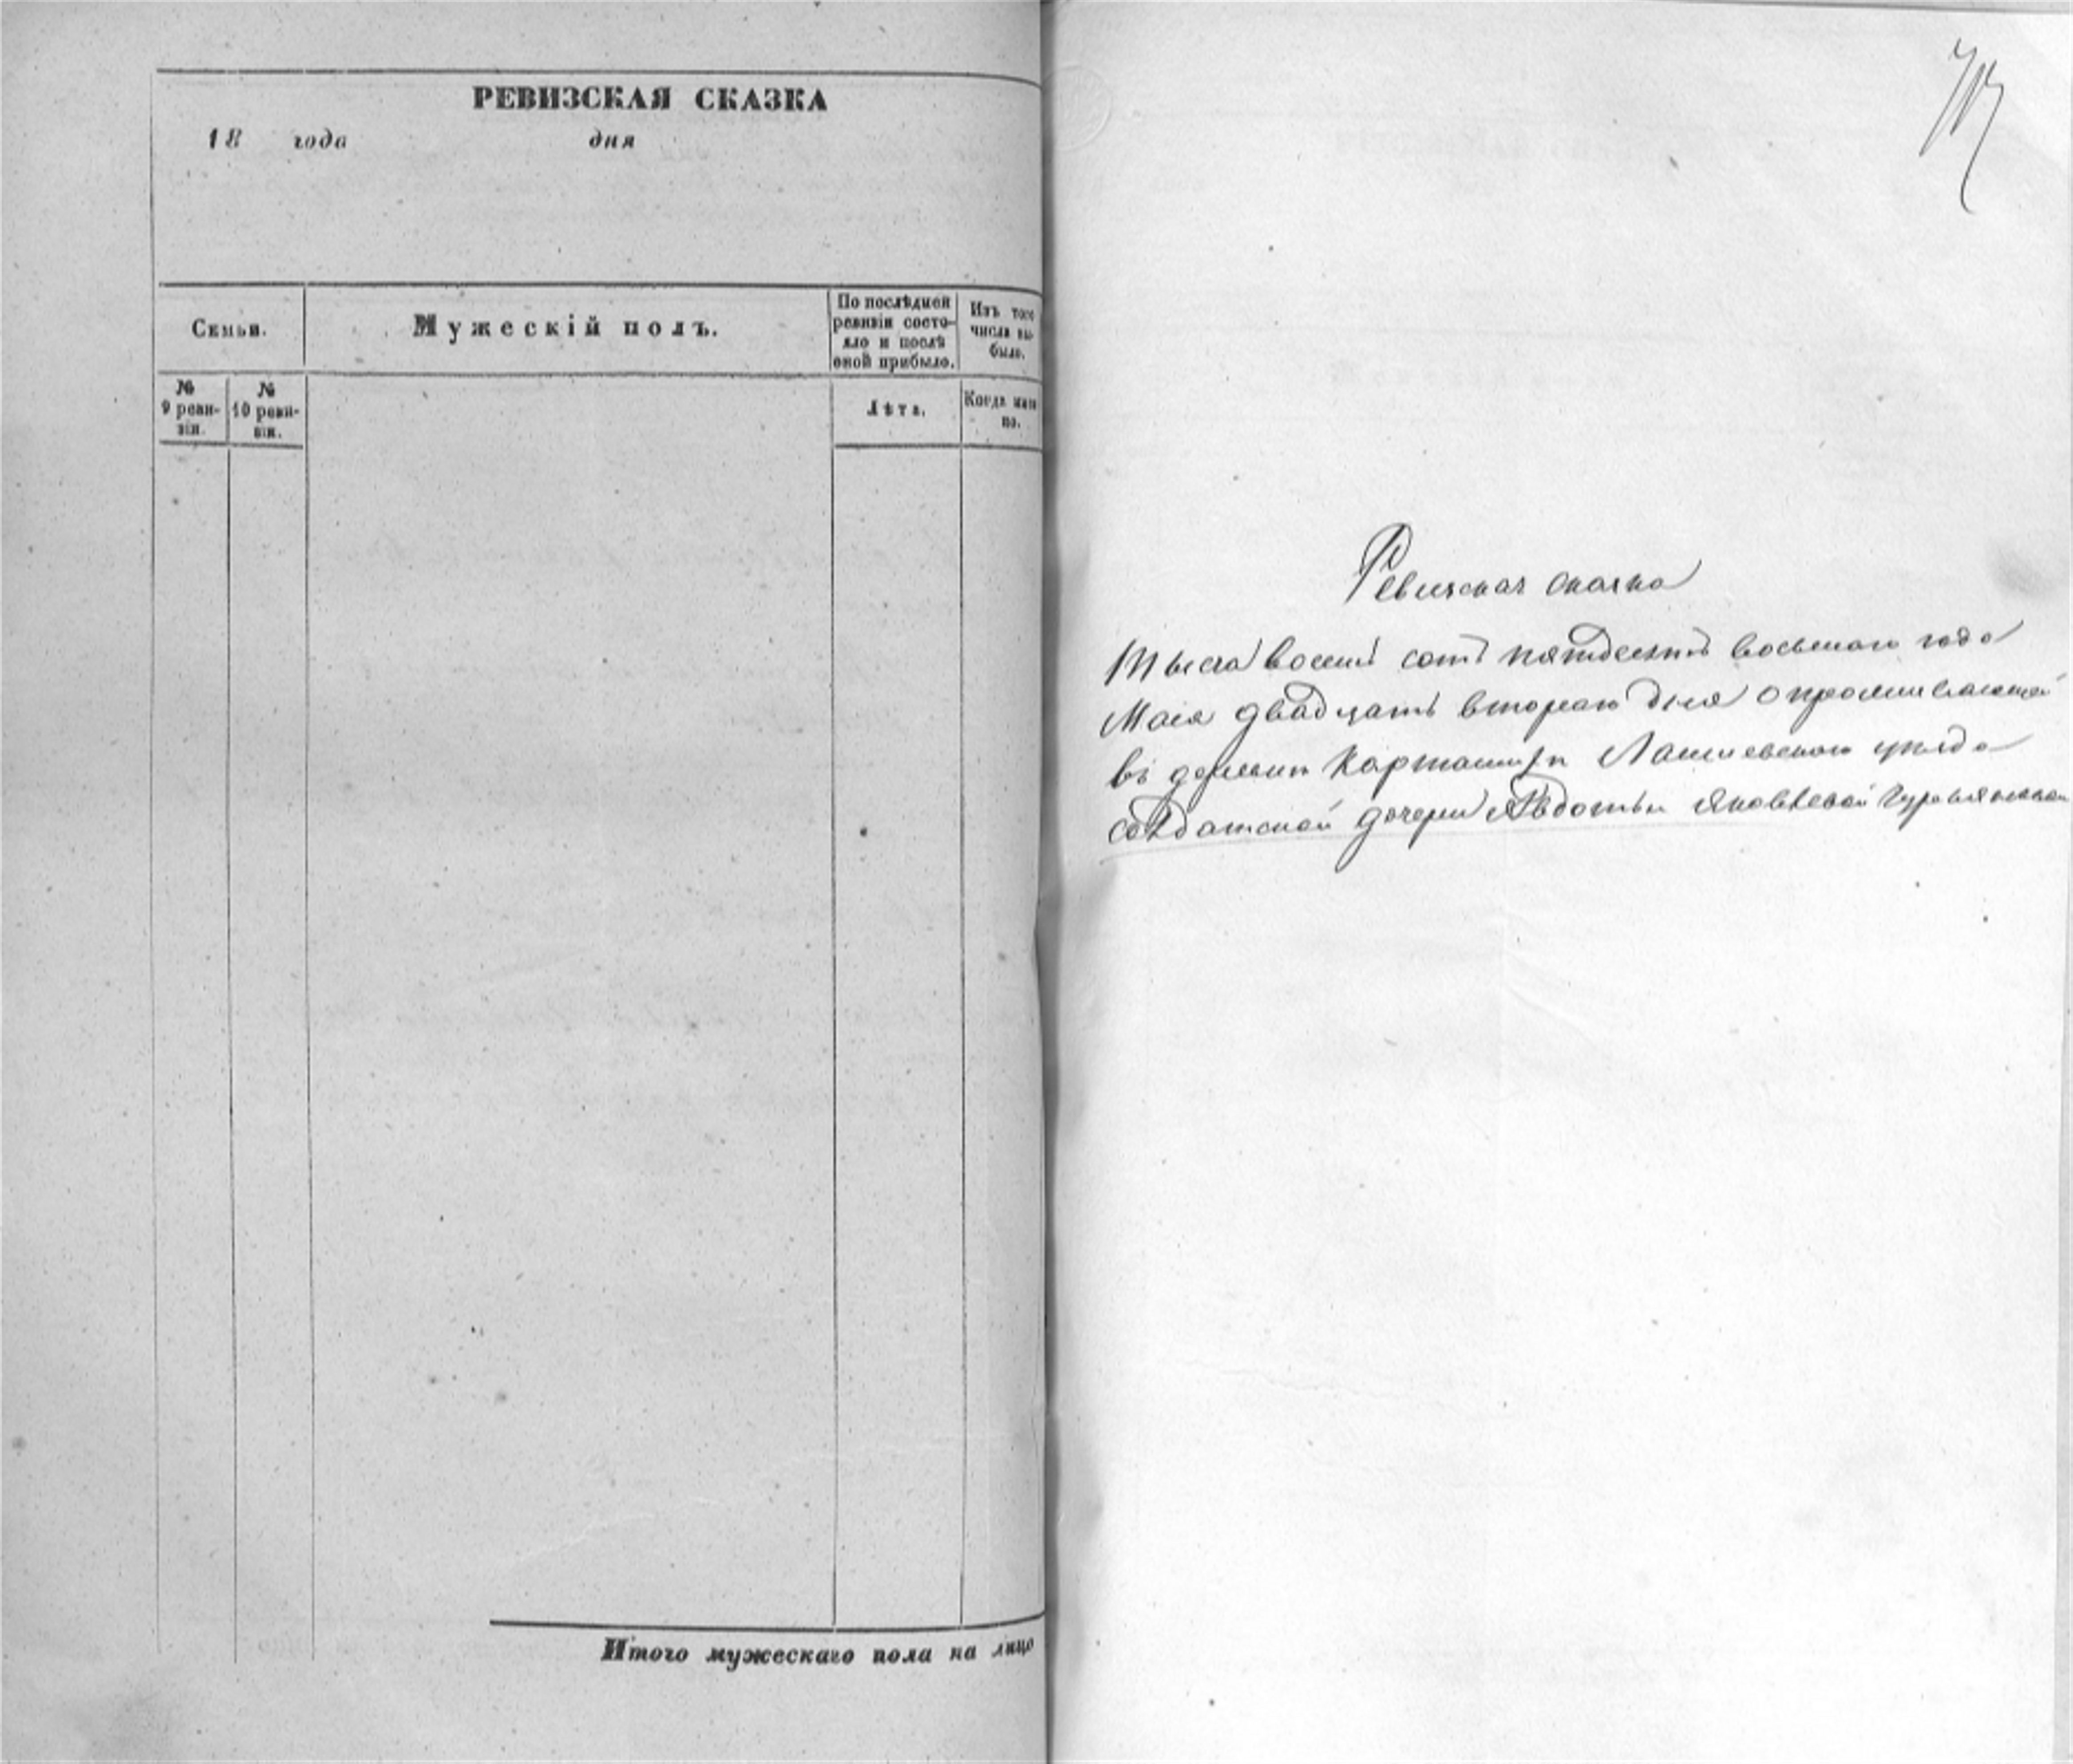 РЕВИЗСКАЯ СКАЗКА
18 года дня
Семьи.
Мужескій полъ.
По послѣдней ревизіи состо-
яло и послѣ
оной прибыло.
Изъ того
числа вы-
было.
№
9 реви-
зіи.
№
10 реви-
зіи.
Лѣта.
Когда имян
но.
Итого мужескаго пола на лицо
Ревизская сказка
Тысеча восемь сотъ пятдесятъ восьмаго года
Маія двадцать втораго дня о проживающей
въ деревни Карташихи Лаишевскаго уѣзда
солдатской дочери Авдотьи Яковлевой